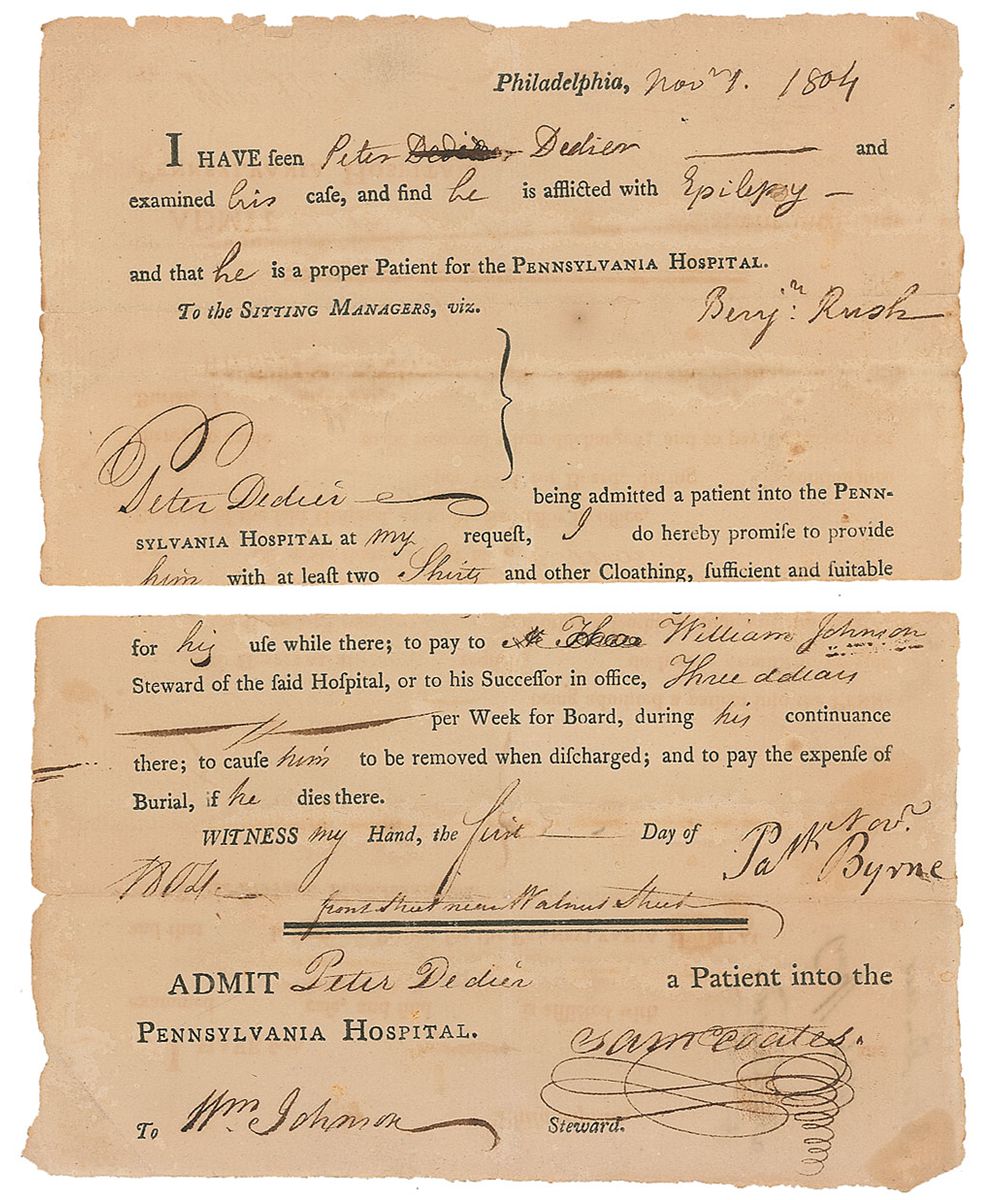 Philadelphia, Novr 1. 1804
I HAVE ſeen Peter Dedier and
examined his caſe, and find he is afflicted with Epilepsy —
and that he is a proper Patient for the PENNSYLVANIA HOSPITAL.
To the SITTING MANAGERS, viz. Benjn: Rush
Peter Dedier being admitted a patient into the PENN-
SYLVANIA HOSPITAL at my requeſt, I do hereby promiſe to provide
him with at leaſt two Shirts and other Cloathing, ſufficient and ſuitable
for his uſe while there; to pay to William Johnson
Steward of the ſaid Hoſpital, or to his Succeſſor in office, Three dollars
per Week for Board, during his continuance
there; to cauſe him to be removed when diſcharged; and to pay the expenſe of
Burial, if he dies there.
WITNESS my Hand, the first Day of Novr.
1804. Patk Byrne
front street near Walnut Street
ADMIT Peter Dedier a Patient into the
PENNSYLVANIA HOSPITAL.
Saml Coates.
To Wm Johnson Steward.